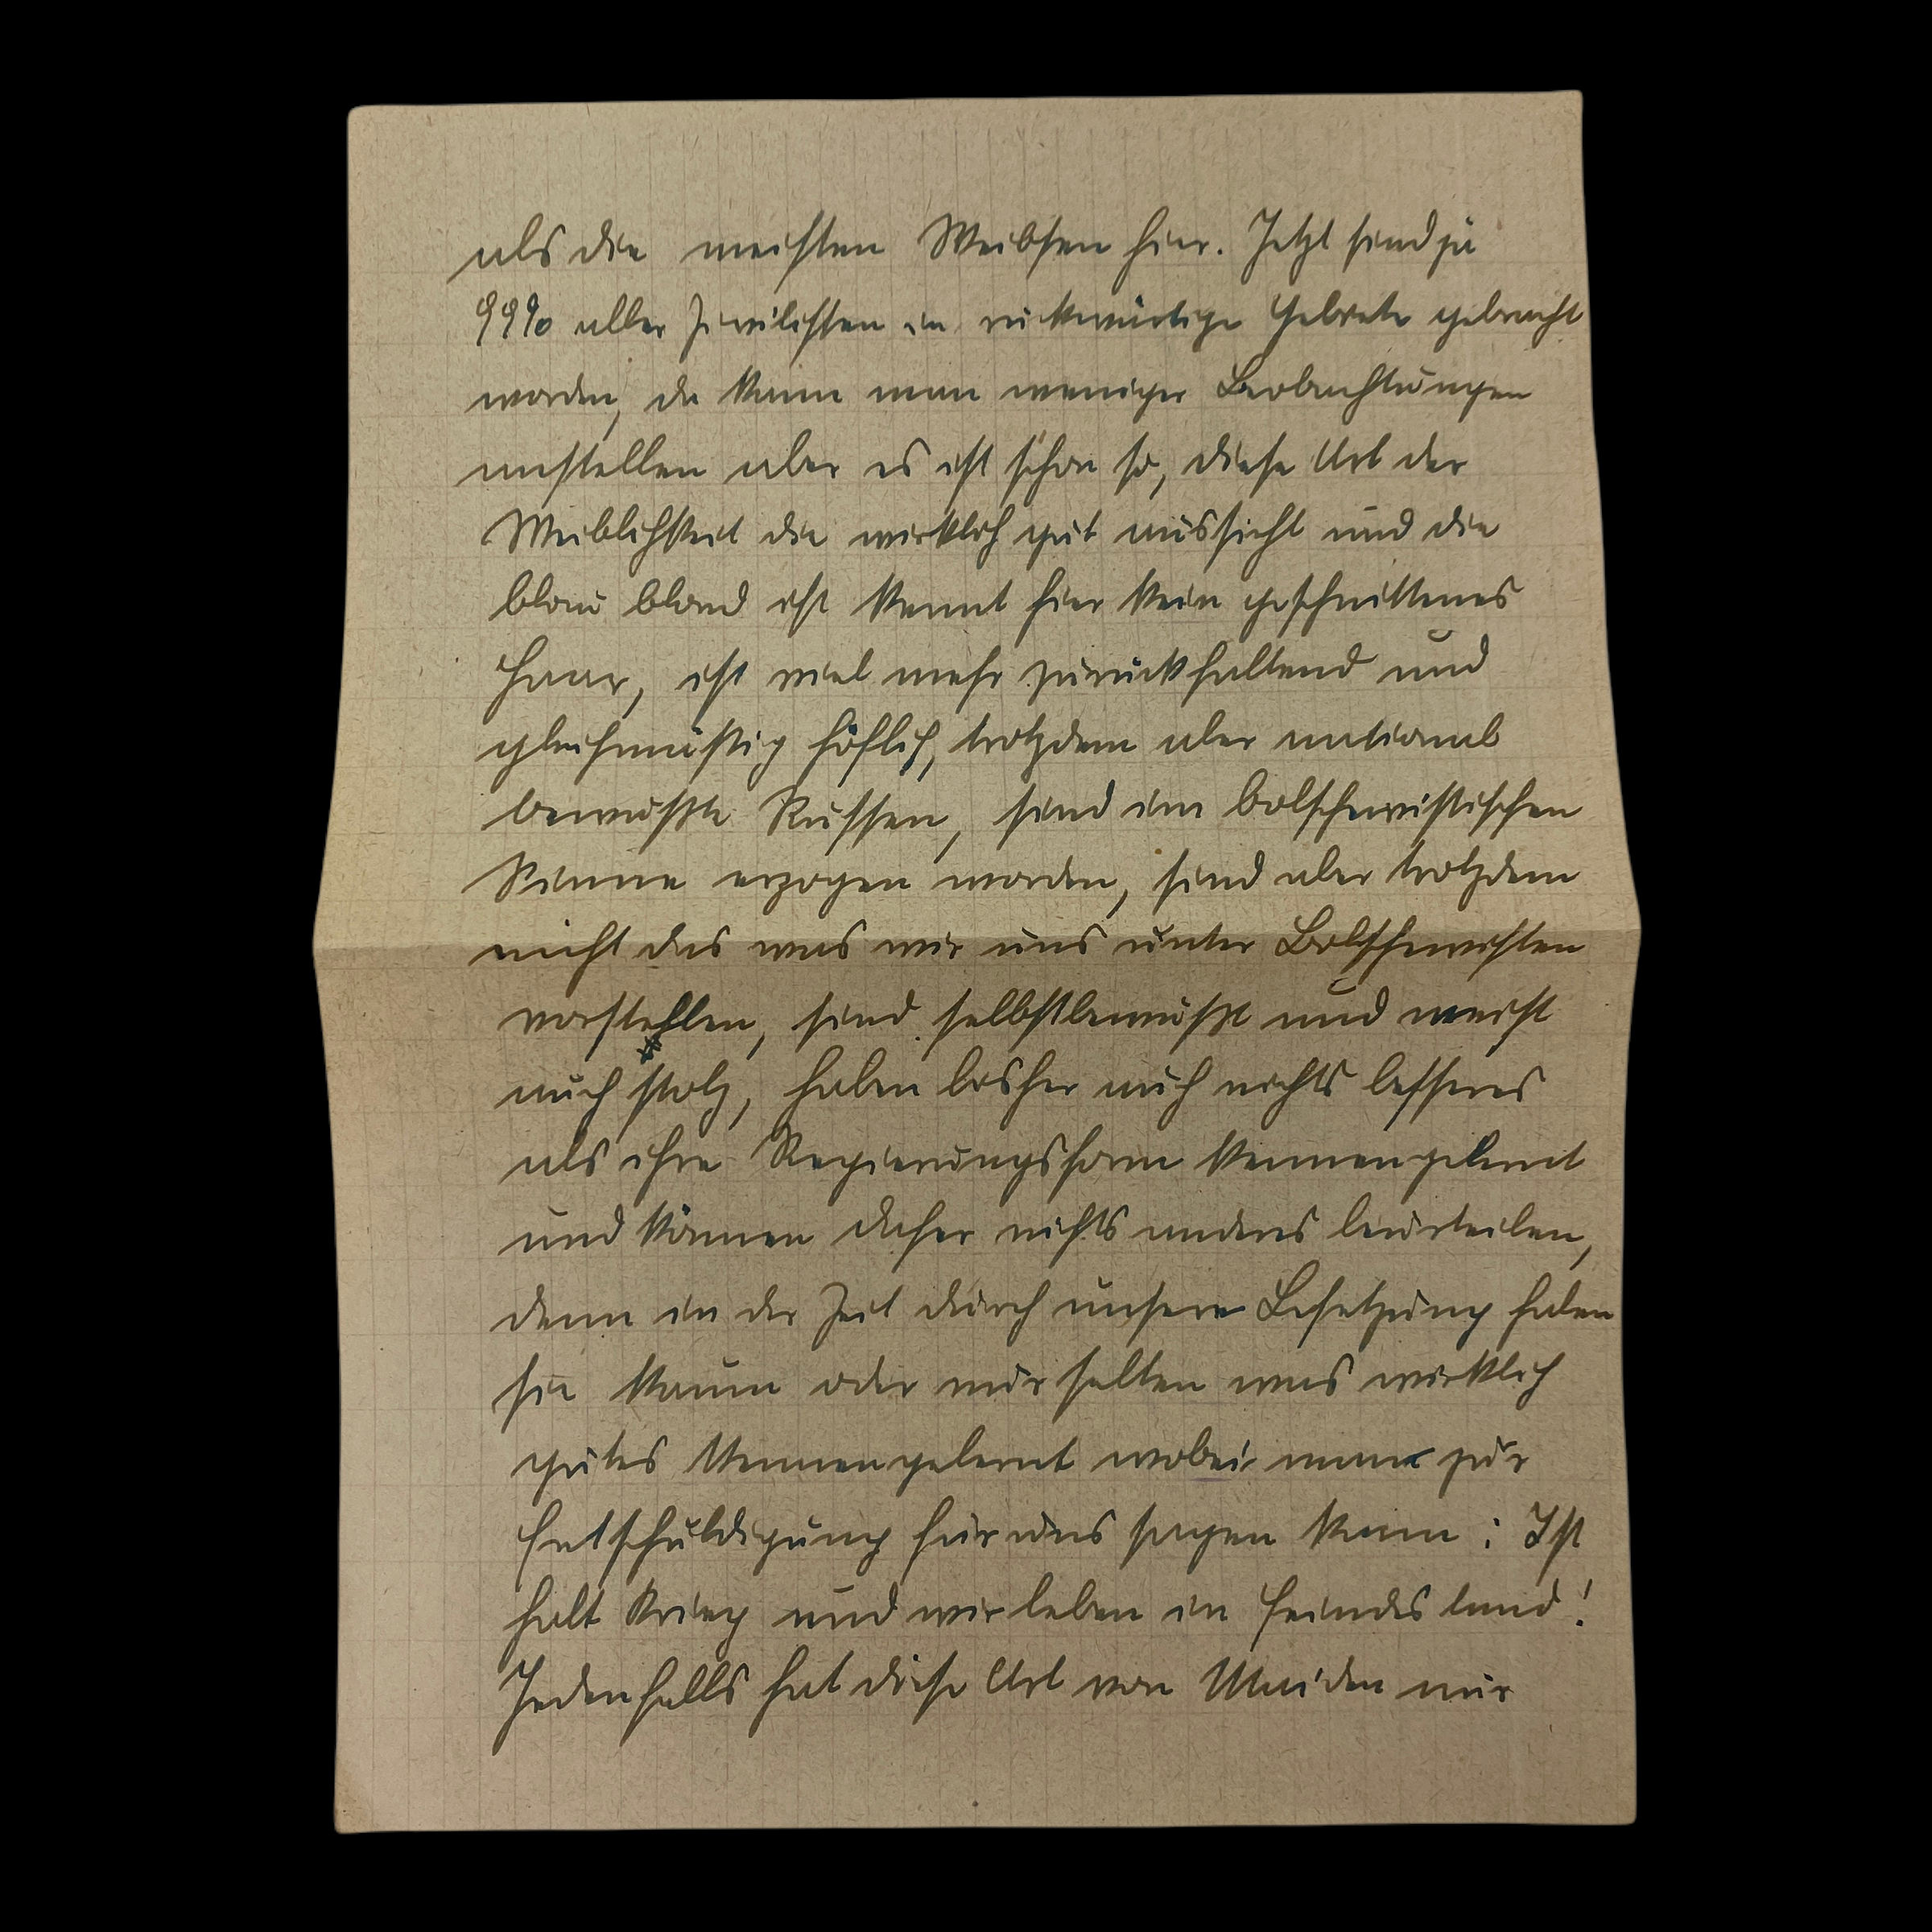 als die meisten Weibsen hier. Jetzt sind ja
99% aller Zivilisten in rückwärtige Gebiete gebracht
worden, da kann man weniger Beobachtungen
anstellen aber es ist schon so, diese Art der
Weiblichkeit die wirklich gut aussieht und die
blau blond ist kennt hier kein geschnittenes
Haar, ist viel mehr zurückhaltend und
gleichmäßig höflich, trotzdem aber national
bewußte Russen, sind im bolschewistischen
Sinne erzogen worden, sind aber trotzdem
nicht das was wir uns unter Bolschewisten
vorstellen, sind selbstbewußt und meist
auch stolz, haben bisher auch nichts besseres
als ihre Regierungsform kennengelernt
und können daher nichts anders beurteilen,
denn in der Zeit durch unsere Besetzung haben
sie kaum oder nur selten was wirklich
gutes kennengelernt wobei man zur
Entschuldigung für uns sagen kann: Ist
halt Krieg und wir leben in Feindes land!
Jedenfalls hat diese Art von Maiden nur